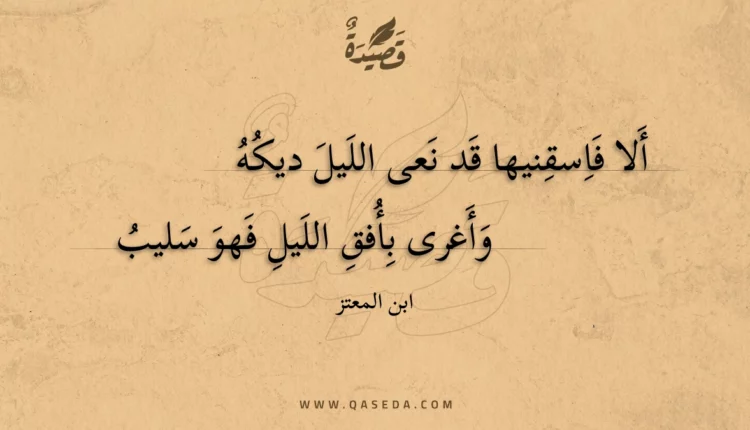 قَصِيدَةٌ
أَلا فَاِسقِنيها قَد نَعى اللَيلَ ديكُهُ
وَأَغرى بِأُفقِ اللَيلِ فَهوَ سَليبُ
ابن المعتز
WWW.QASEDA.COM